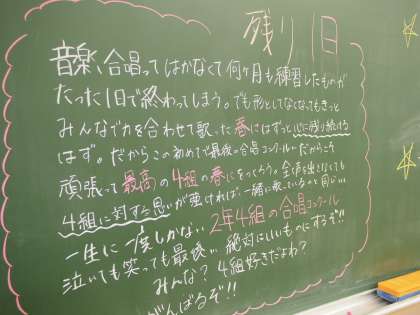 残り1日
音楽、合唱ってはかなくて何ヶ月も練習したものが
たった1日で終わってしまう。でも形としてなくなってもきっと
みんなで力を合わせて歌った春にはずっと心に残り続ける
はず。だからこの初めて最後の合唱コンクールだからこそ
頑張って最高の4組の春にをつくろう。全声を出さなくても
4組に対する思いが強ければ、一緒に歌っているのと同じ…
一生に一度しかない2年4組の合唱コンクール
泣いても笑っても最後… 絶対にいいものにするぞ!!
みんな?4組好きだよね?
がんばるぞ!!